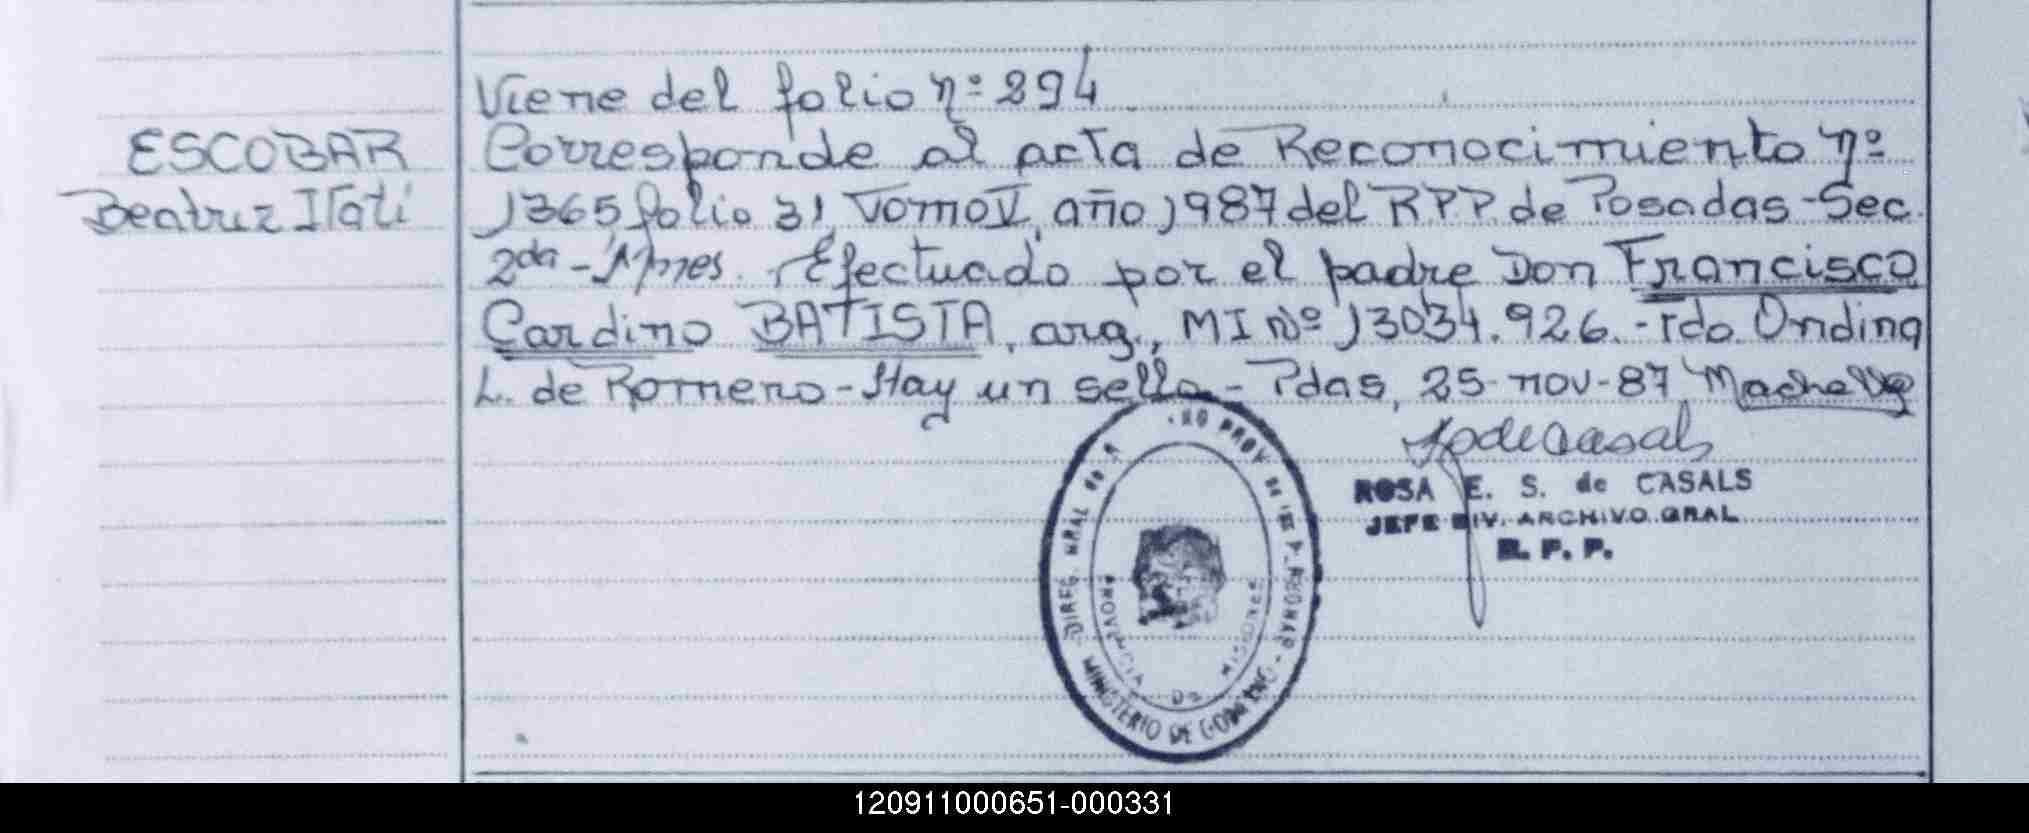 Viene del folio nº 294
ESCOBAR
Beatriz Itatí
Corresponde al acta de Reconocimiento nº
1365 folio 31, Tomo V, año 1987 del RPP. de Posadas - Sec.
2da - Mnes. Efectuado por el padre Don Francisco
Cardino BATISTA, arg., MI Nº 13034.926. - Fdo. Ondina
L. de Romero - Hay un sello - Pdas, 25-nov-87
ROSA E. S. de CASALS
JEFE DIV. ARCHIVO GRAL
R. P. P.
DIREC. GRAL DEL
PROV. DE LAS P.
MINISTERIO DE GOBIERNO
PROVINCIA DE MISIONES
120911000651-000331